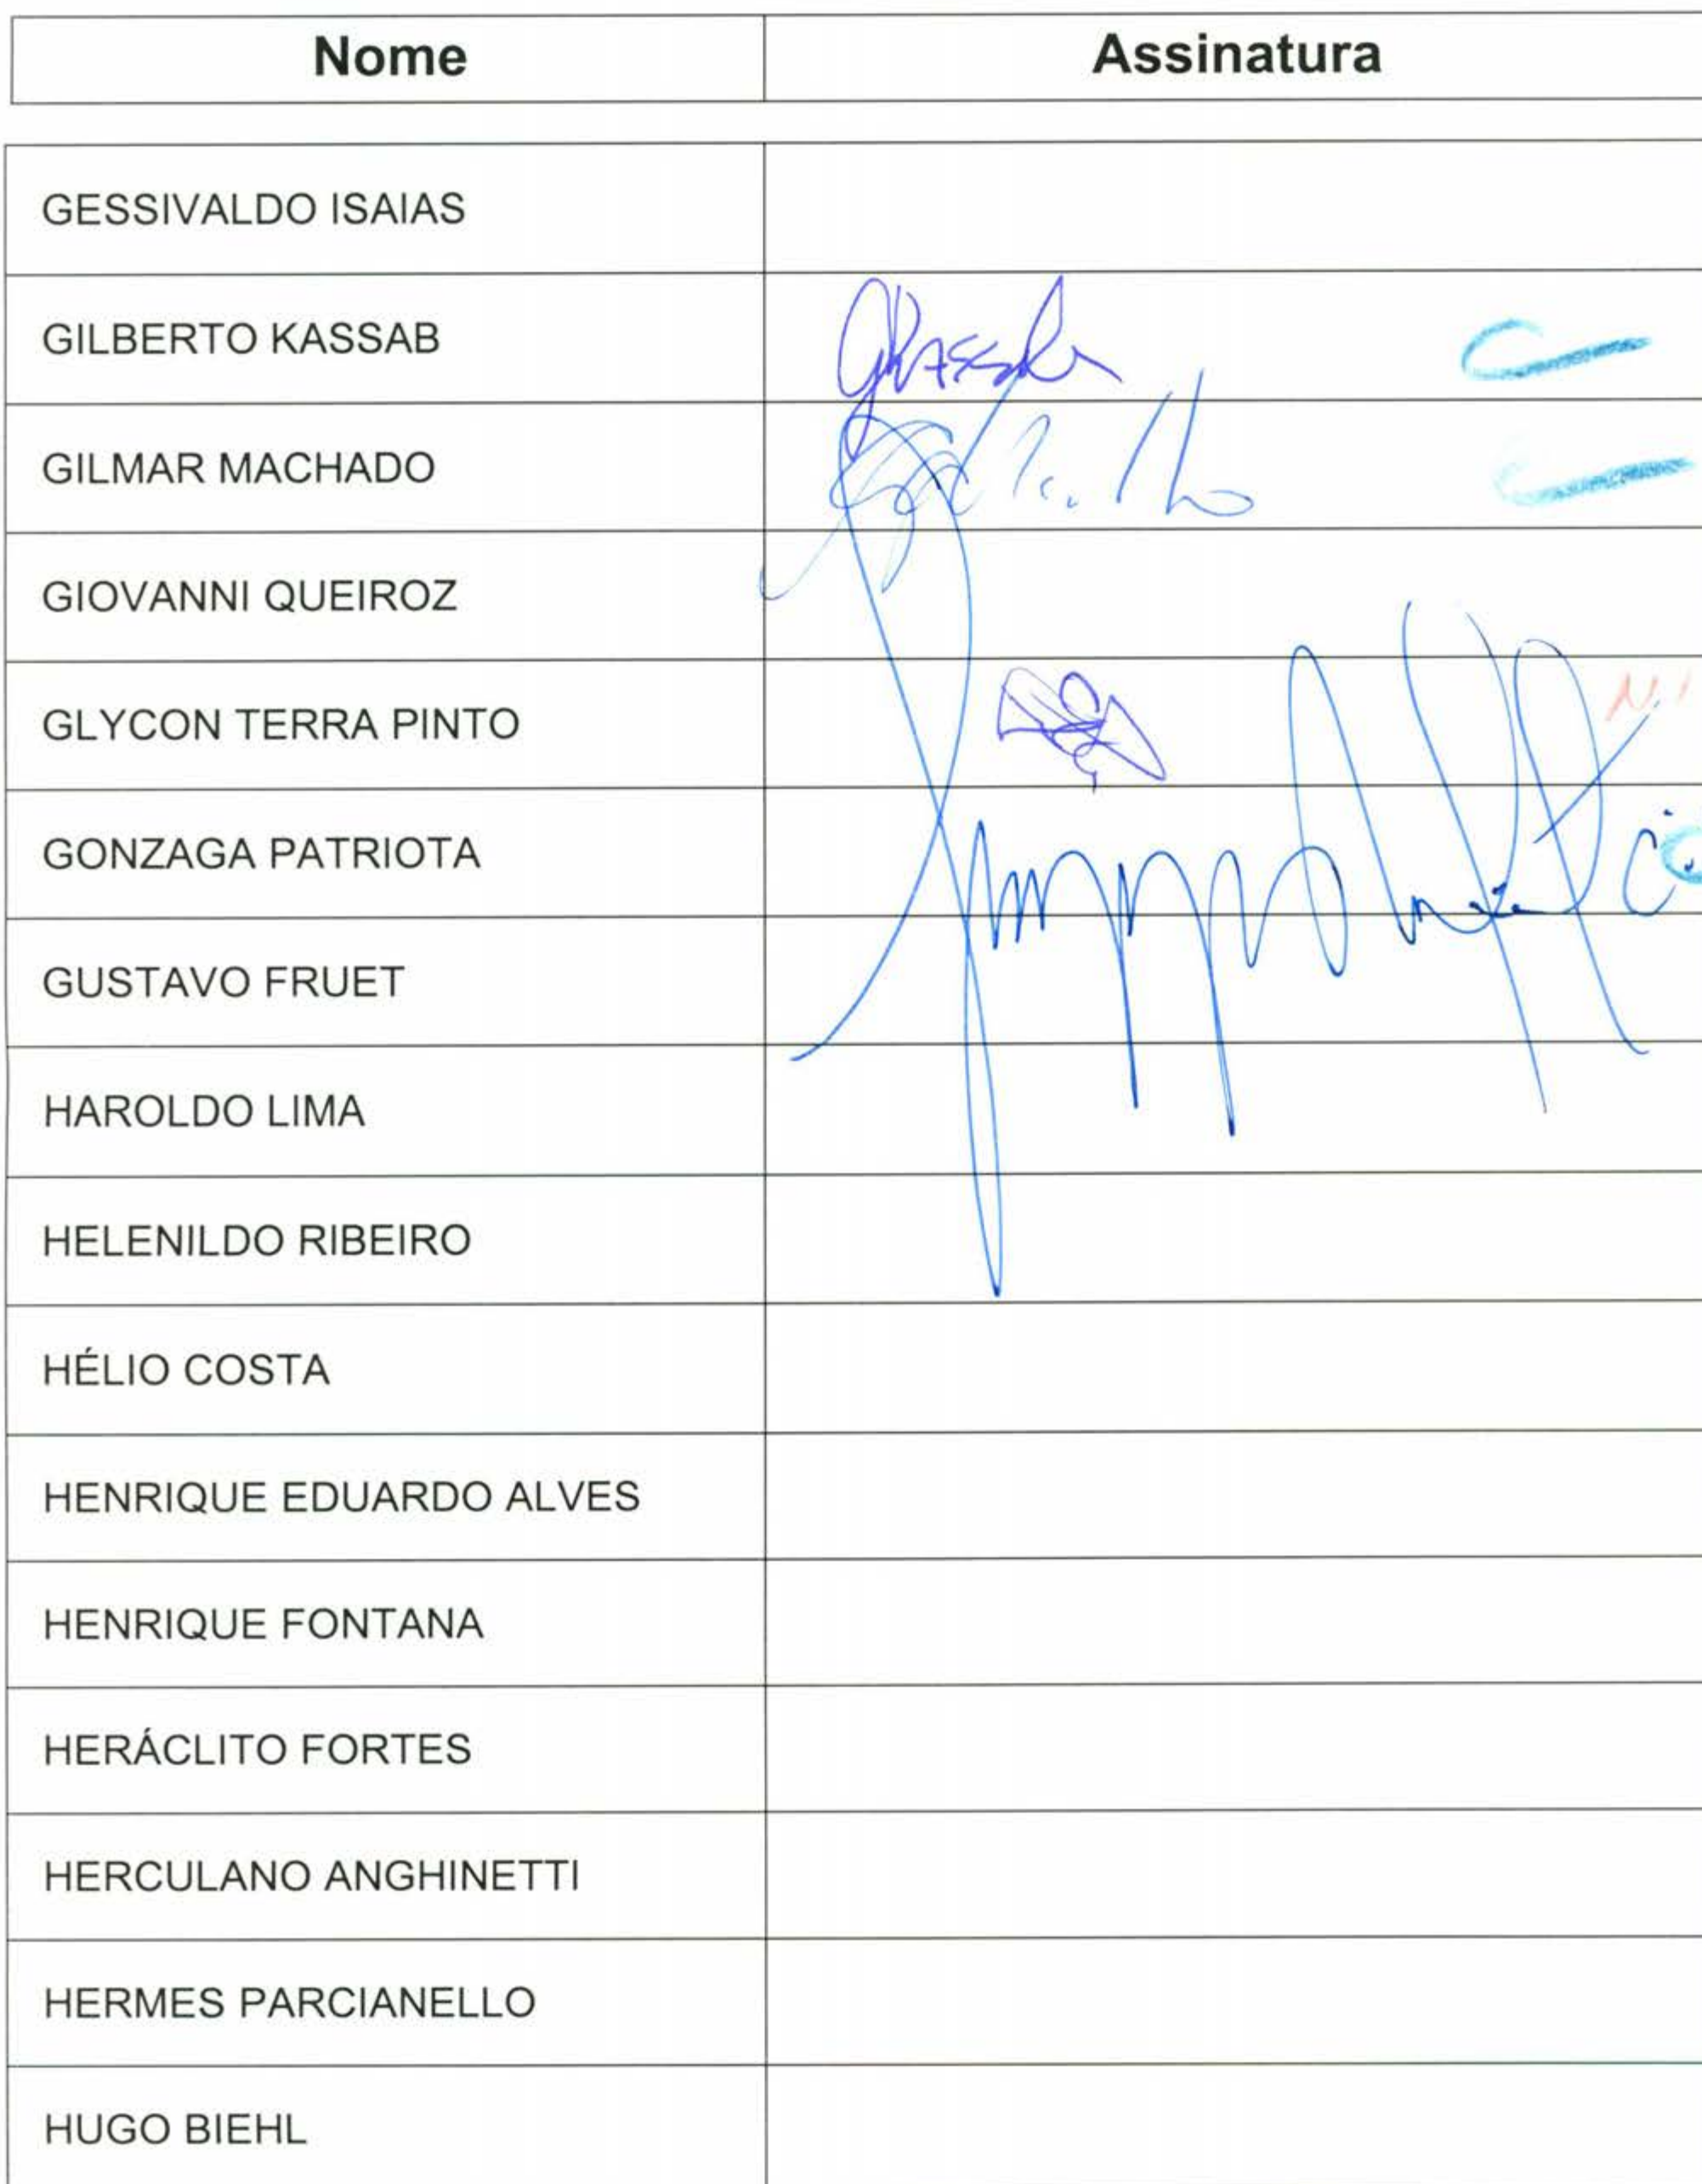 Nome Assinatura
GESSIVALDO ISAIAS
GILBERTO KASSAB GKassab
GILMAR MACHADO
GIOVANNI QUEIROZ
GLYCON TERRA PINTO
GONZAGA PATRIOTA
GUSTAVO FRUET
HAROLDO LIMA
HELENILDO RIBEIRO
HÉLIO COSTA
HENRIQUE EDUARDO ALVES
HENRIQUE FONTANA
HERÁCLITO FORTES
HERCULANO ANGHINETTI
HERMES PARCIANELLO
HUGO BIEHL